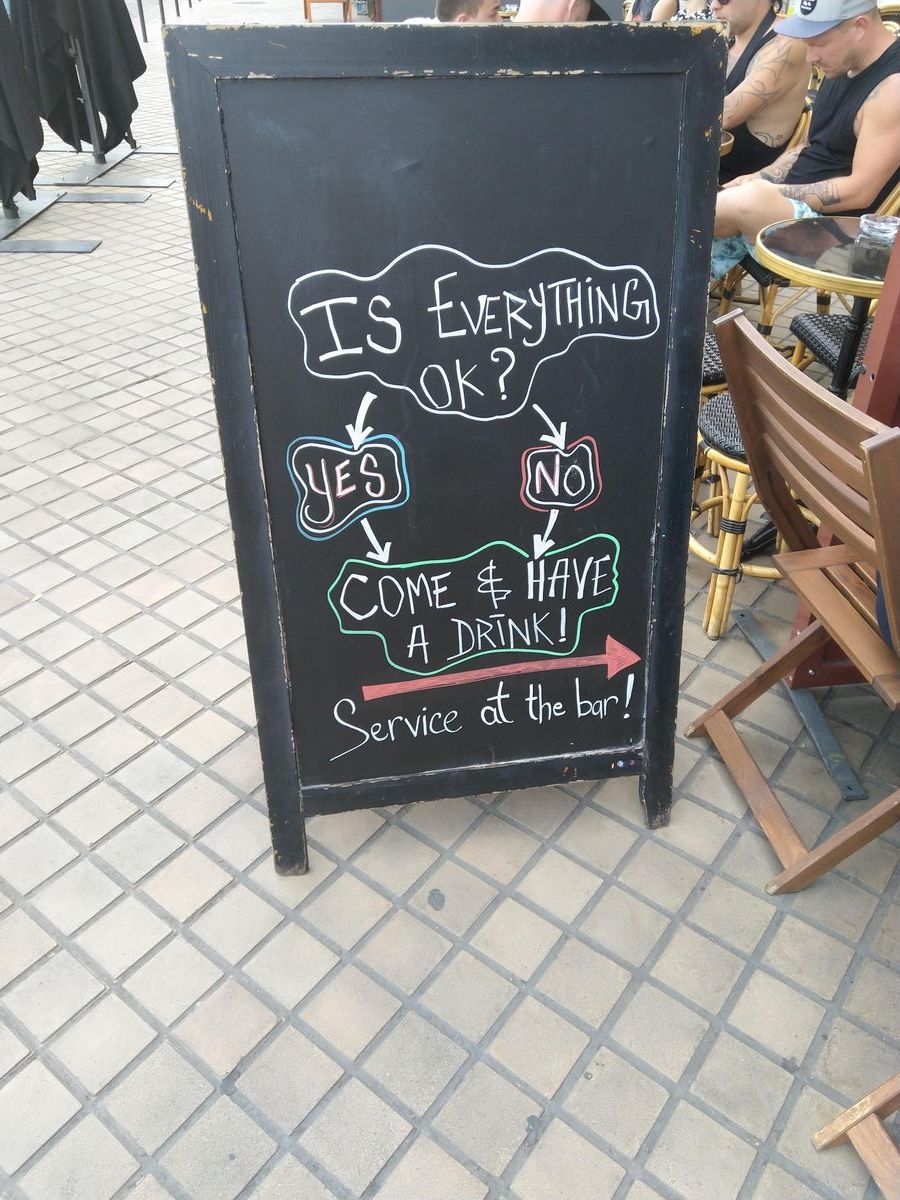 IS EVERYTHING
OK?
YES
NO
COME & HAVE
A DRINK!
Service at the bar!